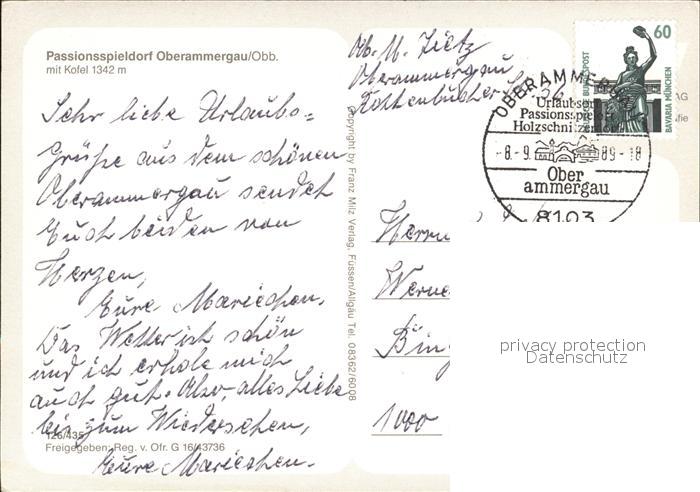 Passionsspieldorf Oberammergau/Obb.
mit Kofel 1342 m
Sehr liebe Urlaubs=
Grüße aus dem schönen
Oberammergau sendet
Euch beiden von
Herzen,
Eure Mariechen.
Das Wetter ist schön
und ich erhole mich
auch gut. Also, alles Liebe
bis zum Wiedersehen,
Eure Mariechen.
126/435
Freigegeben: Reg. v. Ofr. G 16/43736
Copyright by Franz Milz Verlag, Füssen/Allgäu Tel. 08362/6008
Ob. M. Zietz
Oberammergau
Rottenbucher
60
BUNDESPOST
BAVARIA MÜNCHEN
OBERAMMERGAU
Urlaubsort
Passionsspiele
Holzschnitzerei
-8.-9. 89-18
Ober
ammergau
8103
Herrn
Werne
Bing
1000
privacy protection
Datenschutz